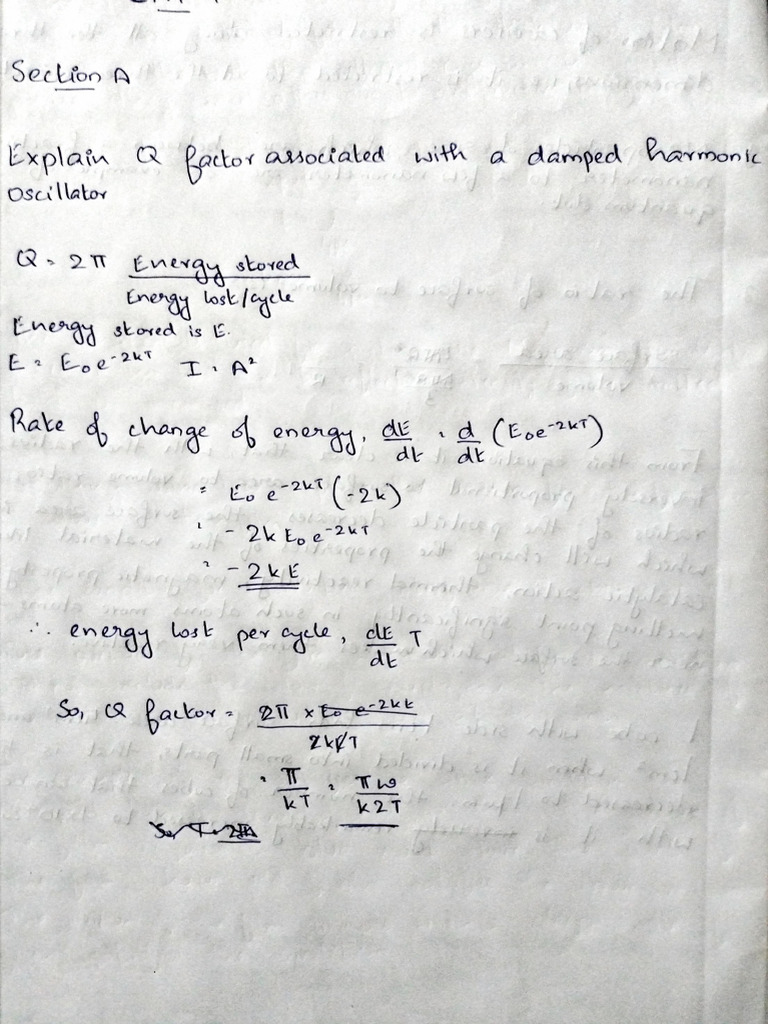 Section A
Explain Q factor associated with a damped harmonic
oscillator
Q = 2π Energy stored / Energy lost/cycle
Energy stored is E.
E = E₀e^-2kT I = A²
Rate of change of energy, dE/dt = d/dt (E₀e^-2kT)
= E₀ e^-2kT (-2k)
= - 2k E₀ e^-2kT
= - 2kE
∴ energy lost per cycle, dE/dt T
So, Q factor = 2π × E₀ e^-2kt / 2kET
= π/kT = πω/k2T